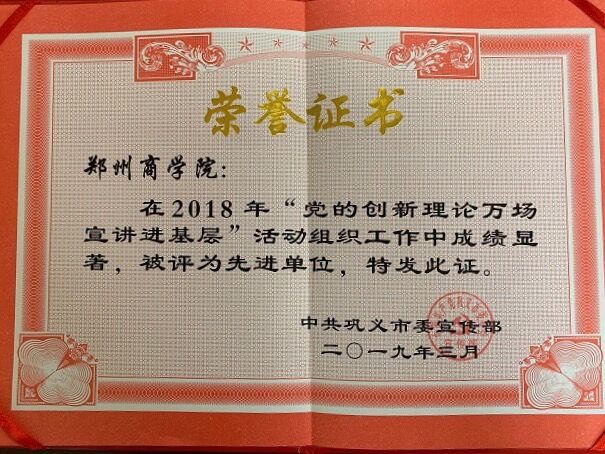 荣誉证书
郑州商学院：
在2018年“党的创新理论万场
宣讲进基层”活动组织工作中成绩显
著，被评为先进单位，特发此证。
中共巩义市委宣传部
二〇一九年三月